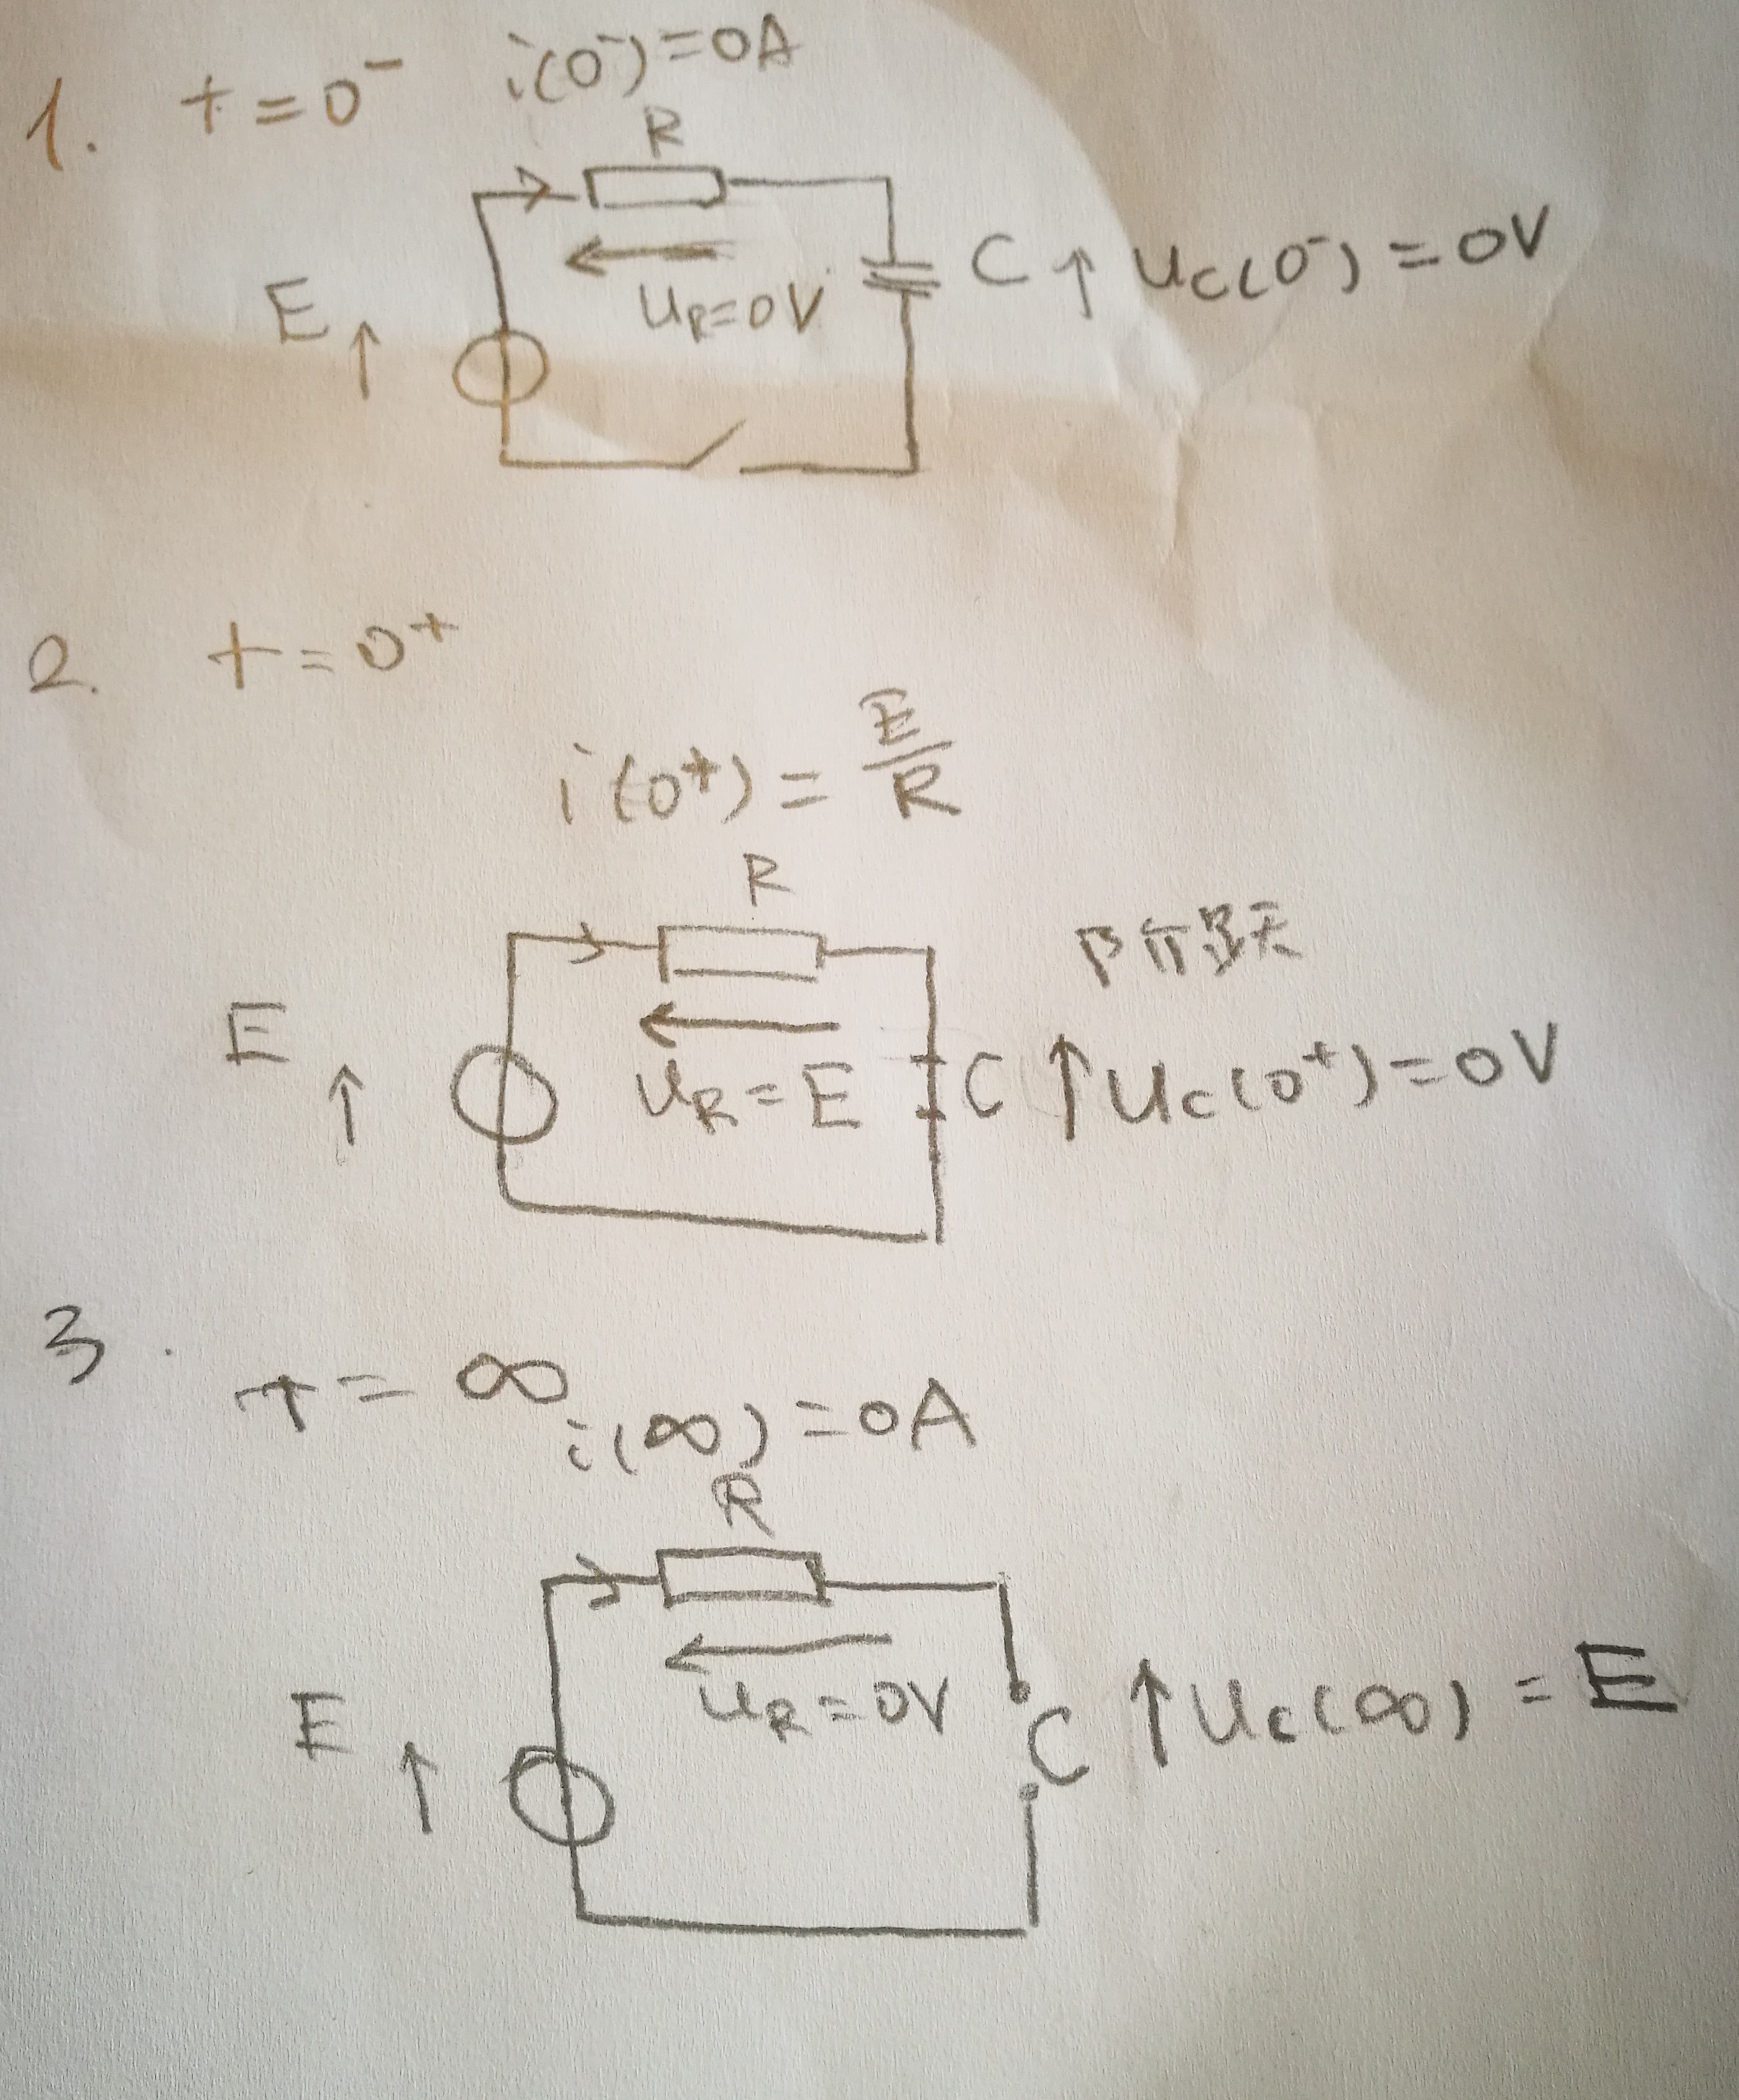 1. t=0⁻ i(0⁻)=0A
R
E ↑ uR=0V C ↑ uc(0⁻)=0V
2. t=0⁺
i(0⁺)=E/R
R
E ↑ uR=E C ↑ uc(0⁺)=0V
3. t=∞
i(∞)=0A
R
E ↑ uR=0V C ↑ uc(∞)=E